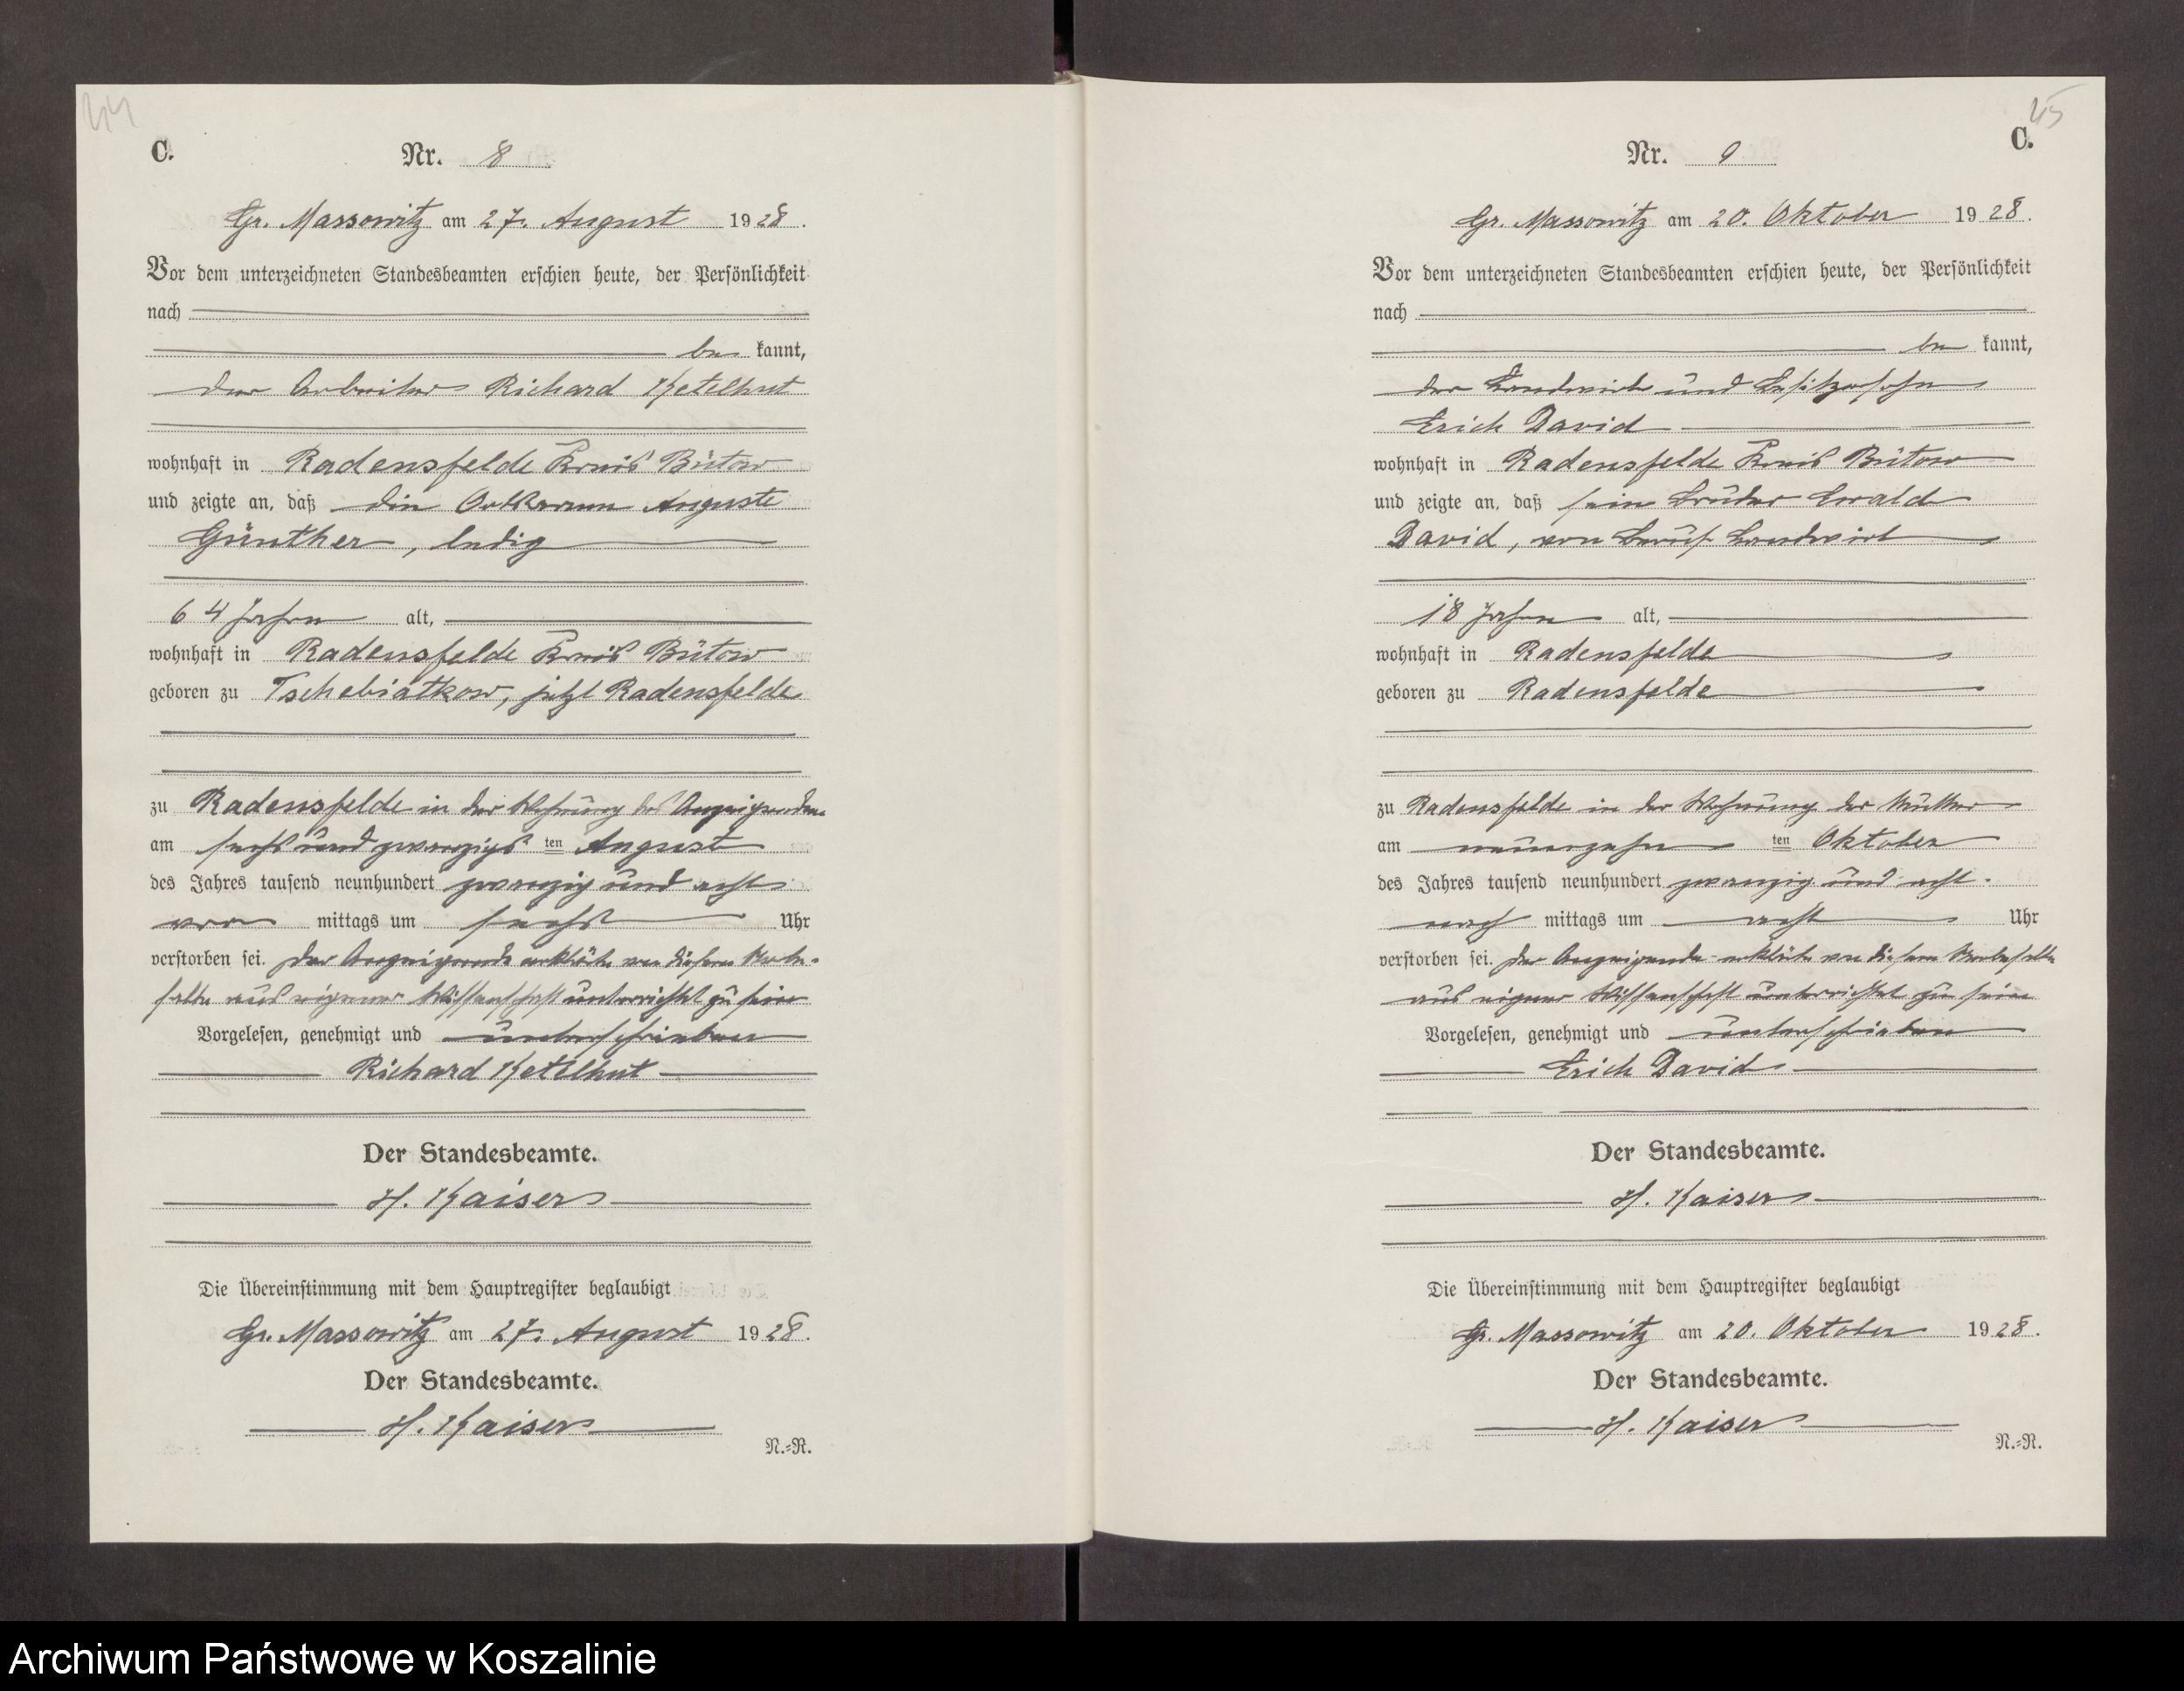 44
C.
Nr. 8
Gr. Massowitz am 27. August 1928.
Vor dem unterzeichneten Standesbeamten erschien heute, der Persönlichkeit
nach
be kannt,
der Arbeiter Richard Ketelhut
wohnhaft in Radensfelde Kreis Bütow
und zeigte an, daß die Ortsarme Auguste
Günther, ledig
64 Jahre alt,
wohnhaft in Radensfelde Kreis Bütow
geboren zu Tschebiatkow, jetzt Radensfelde
zu Radensfelde in der Wohnung des Anzeigenden
am sechs und zwanzigs ten August
des Jahres tausend neunhundert zwanzig und acht
vor mittags um sechs Uhr
verstorben sei. Der Anzeigende erklärte von diesem Sterbe-
falle aus eigener Wissenschaft unterrichtet zu sein
Vorgelesen, genehmigt und unterschrieben
Richard Ketelhut
Der Standesbeamte.
H. Kaiser
Die Übereinstimmung mit dem Hauptregister beglaubigt
Gr. Massowitz am 27. August 1928.
Der Standesbeamte.
H. Kaiser
N.=R.
45
C.
Nr. 9
Gr. Massowitz am 20. Oktober 1928.
Vor dem unterzeichneten Standesbeamten erschien heute, der Persönlichkeit
nach
be kannt,
der Landwirt und Besitzersohn
Erich David
wohnhaft in Radensfelde Kreis Bütow
und zeigte an, daß sein Bruder Ewald
David, von Beruf Landwirt
18 Jahre alt,
wohnhaft in Radensfelde
geboren zu Radensfelde
zu Radensfelde in der Wohnung der Mutter
am neunzehn ten Oktober
des Jahres tausend neunhundert zwanzig und acht.
nach mittags um acht Uhr
verstorben sei. Der Anzeigende erklärte von diesem Sterbefalle
aus eigener Wissenschaft unterrichtet zu sein
Vorgelesen, genehmigt und unterschrieben
Erich David
Der Standesbeamte.
H. Kaiser
Die Übereinstimmung mit dem Hauptregister beglaubigt
Gr. Massowitz am 20. Oktober 1928.
Der Standesbeamte.
H. Kaiser
N.=R.
Archiwum Państwowe w Koszalinie